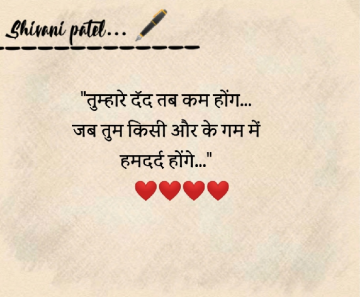 Shivani patel...
"तुम्हारे दॅद तब कम होंग...
जब तुम किसी और के गम में
हमदर्द होंगे..."